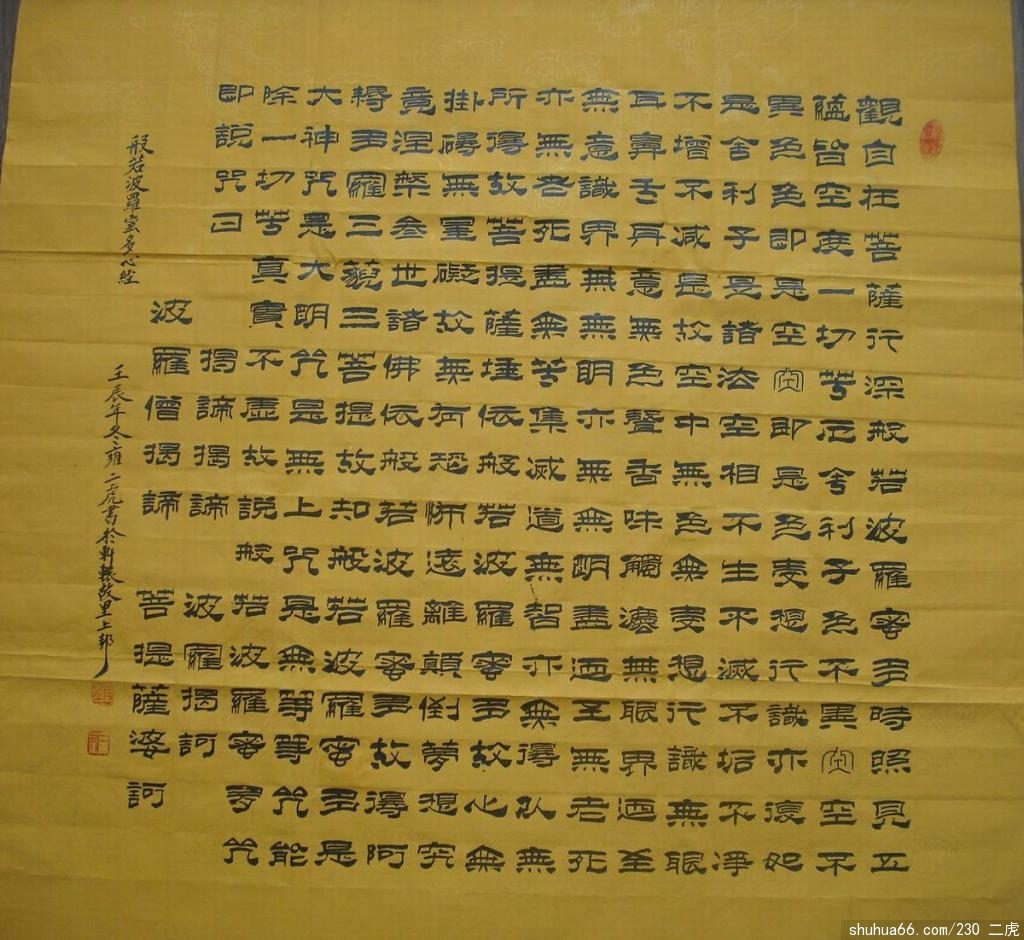 觀自在菩薩行深般若波羅蜜多時照見五
蘊皆空度一切苦厄舍利子色不異空空不
異色色即是空空即是色受想行識亦復如
是舍利子是諸法空相不生不滅不垢不淨
不增不減是故空中無色無受想行識無眼
耳鼻舌身意無色聲香味觸法無眼界迺至
無意識界無無明亦無無明盡迺至無老死
亦無老死盡無苦集滅道無智亦無得以無
所得故菩提薩埵依般若波羅蜜多故心無
掛碍無罣礙故無有恐怖遠離顛倒夢想究
竟涅槃叁世諸佛依般若波羅蜜多故得阿
耨多羅三藐三菩提故知般若波羅蜜多是
大神咒是大明咒是無上咒是無等等咒能
除一切苦真實不虛故說般若波羅蜜多咒
即說咒曰
揭諦揭諦 波羅揭訶
波羅僧揭諦 菩提薩婆訶
般若波羅蜜多心經
壬辰年冬雍二虎書於軒轅故里上邽
shuhua66.com/230 二虎